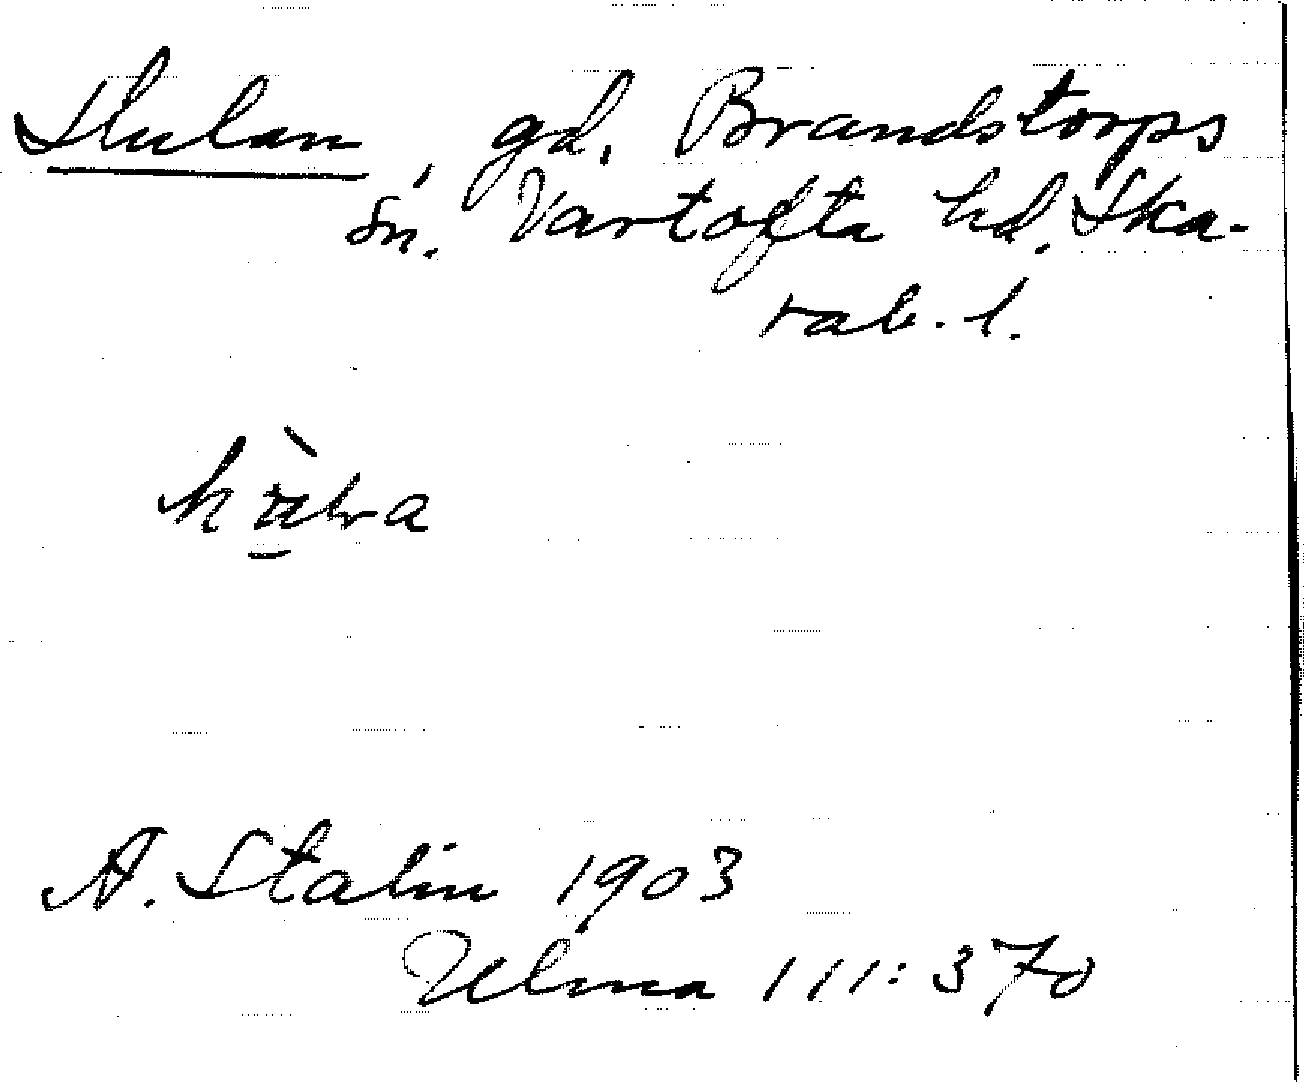 Hulan, gd. Brandstorps
sn. Vartofta hd. Ska-
rab. l.
A. Stalin 1903
Ulma 111:370